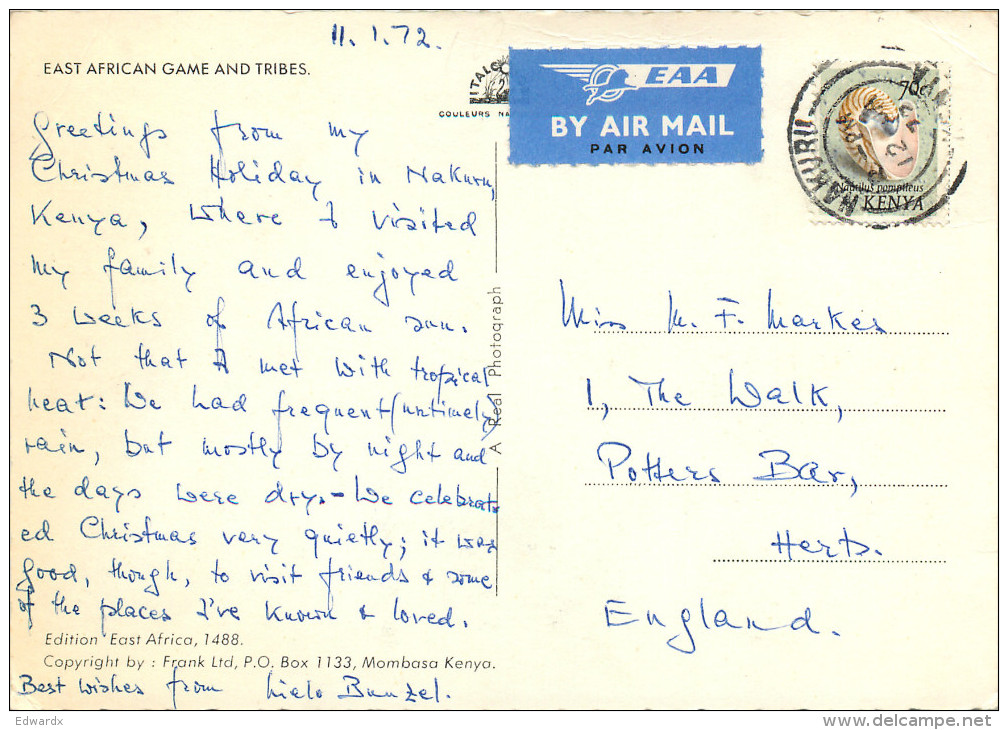 11.1.72.
EAST AFRICAN GAME AND TRIBES.
ITALC
COULEURS NA
EAA
BY AIR MAIL
PAR AVION
NAKURU
70c
Nautilus pompileus
KENYA
Greetings from my
Christmas Holiday in Nakuru,
Kenya, where I visited
my family and enjoyed
3 weeks of African sun.
Not that I met with tropical
heat: We had frequent (untimely)
rain, but mostly by night and
the days were dry. - We celebrat-
ed Christmas very quietly; it was
good, though, to visit friends & some
of the places I've known & loved.
Edition East Africa, 1488.
Copyright by : Frank Ltd, P.O. Box 1133, Mombasa Kenya.
Best wishes from Bunzel.
A Real Photograph
Miss M. F. Markes
1, The Walk,
Potters Bar,
Herts.
England.
Edwardx
delcampe.net